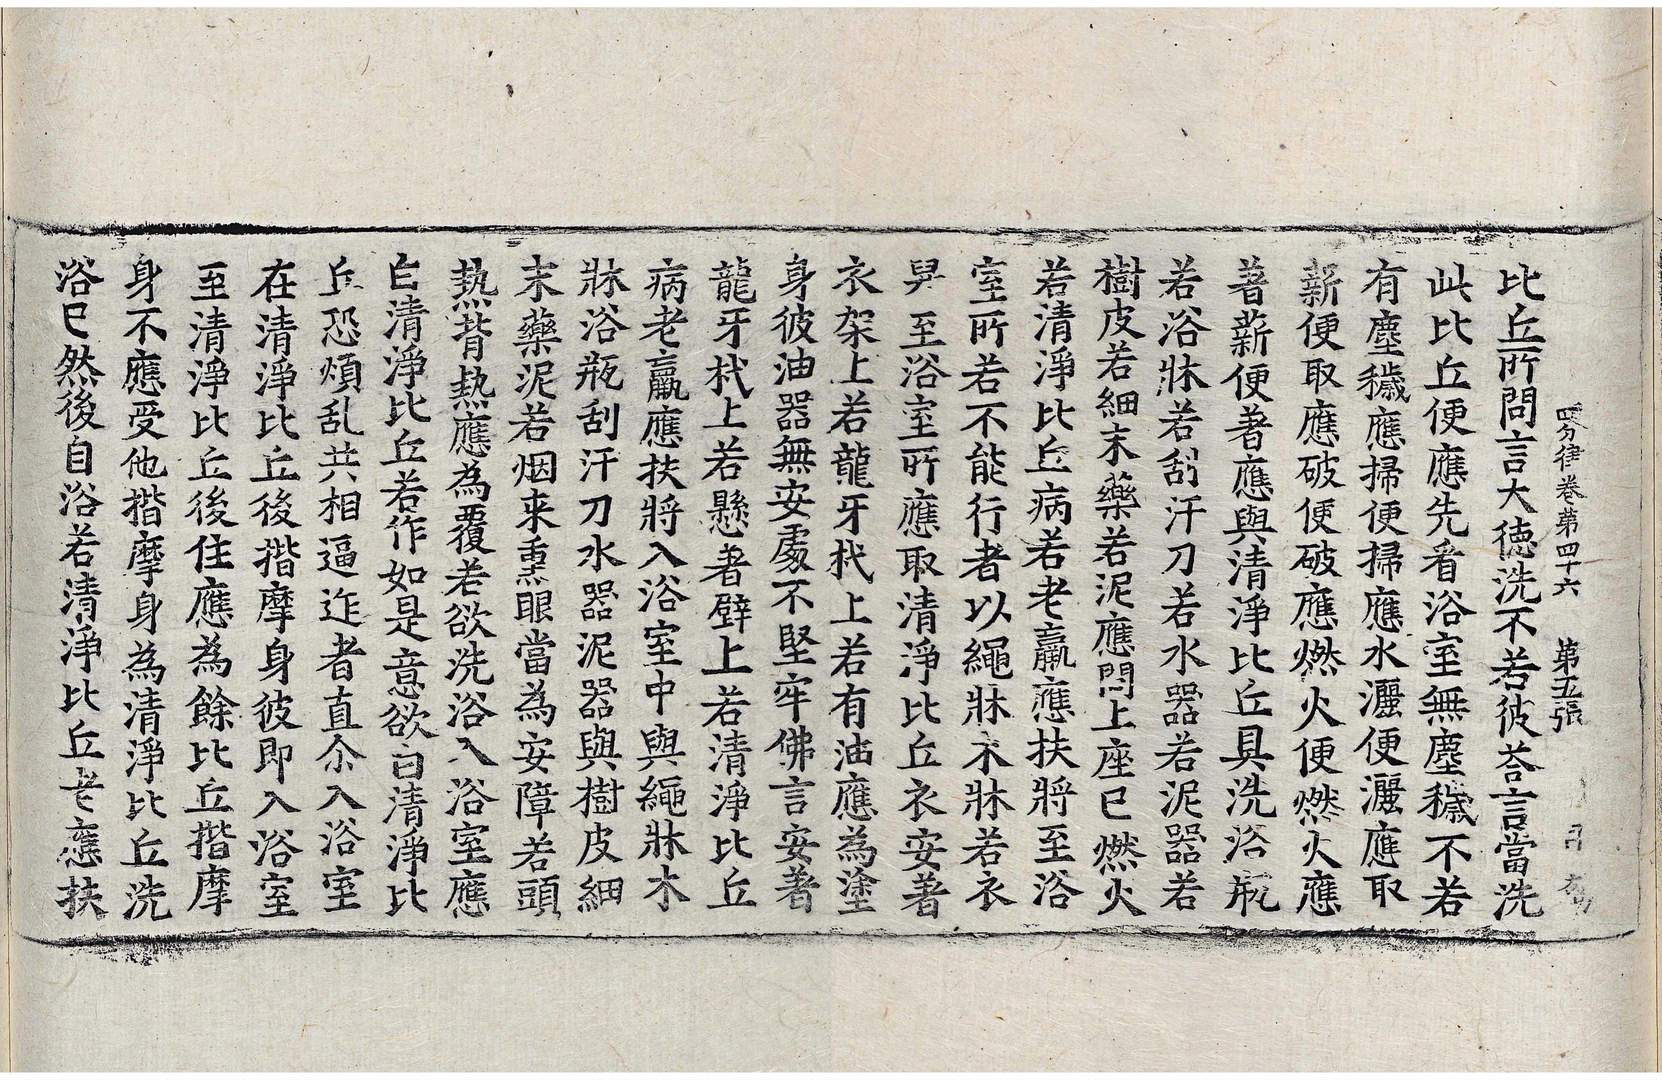 四分律卷第四十六 第五張
比丘所問言大德洗不若彼荅言當洗
此比丘便應先看浴室無塵穢不若
有塵穢應掃便掃應水灑便灑應取
薪便取應破便破應燃火便燃火應
著薪便著應與清淨比丘具洗浴瓶
若浴牀若刮汗刀若水器若泥器若
樹皮若細末藥若泥應問上座已燃火
若清淨比丘病若老羸應扶將至浴
室所若不能行者以繩牀木牀若衣
舁至浴室所應取清淨比丘衣安著
衣架上若龍牙杙上若有油應為塗
身彼油器無安處不堅牢佛言安著
龍牙杙上若懸著壁上若清淨比丘
病老羸應扶將入浴室中與繩牀木
牀浴瓶刮汗刀水器泥器與樹皮細
末藥泥若烟来熏眼當為安障若頭
熱背熱應為覆若欲洗浴入浴室應
白清淨比丘若作如是意欲白清淨比
丘恐煩乱共相逼迮者直尒入浴室
在清淨比丘後揩摩身彼即入浴室
至清淨比丘後住應為餘比丘揩摩
身不應受他揩摩身為清淨比丘洗
浴已然後自浴若清淨比丘老應扶